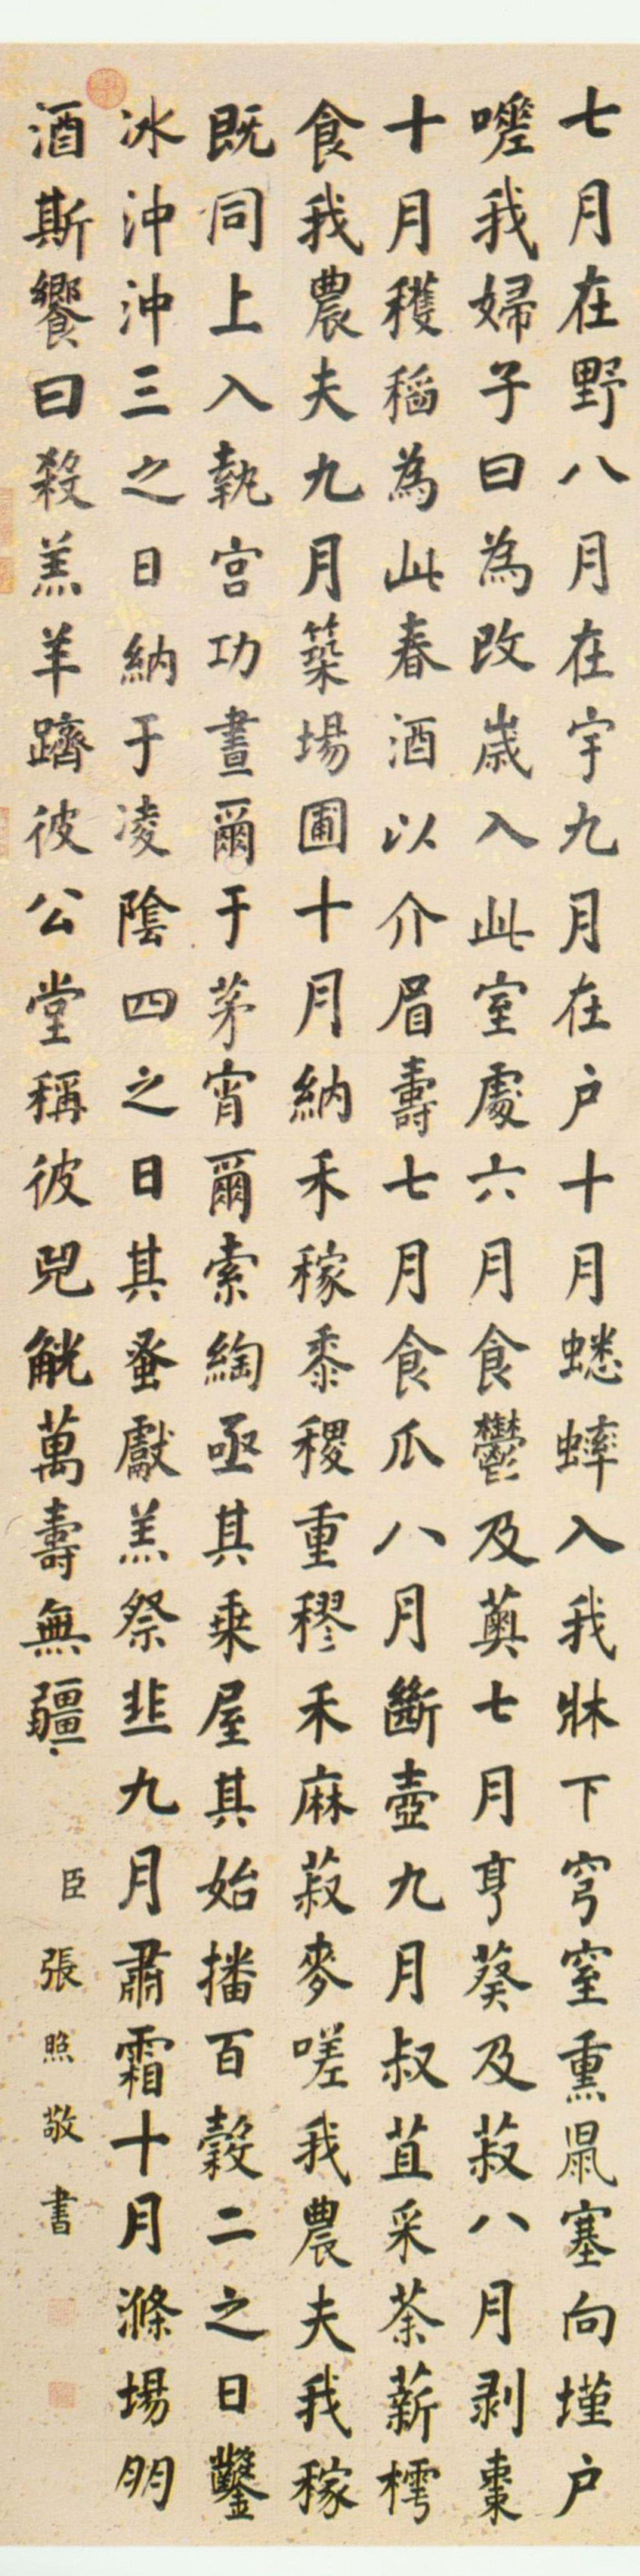 七月在野八月在宇九月在户十月蟋蟀入我牀下穹窒熏鼠塞向墐户
嗟我婦子曰為改歲入此室處六月食鬱及薁七月亨葵及菽八月剥棗
十月穫稻為此春酒以介眉壽七月食瓜八月斷壺九月叔苴采荼薪樗
食我農夫九月築場圃十月納禾稼黍稷重穋禾麻菽麥嗟我農夫我稼
既同上入執宫功晝爾于茅宵爾索綯亟其乗屋其始播百穀二之日鑿
冰沖沖三之日納于凌陰四之日其蚤獻羔祭韭九月肅霜十月滌場朋
酒斯饗曰殺羔羊躋彼公堂稱彼兕觥萬壽無疆
臣張照敬書